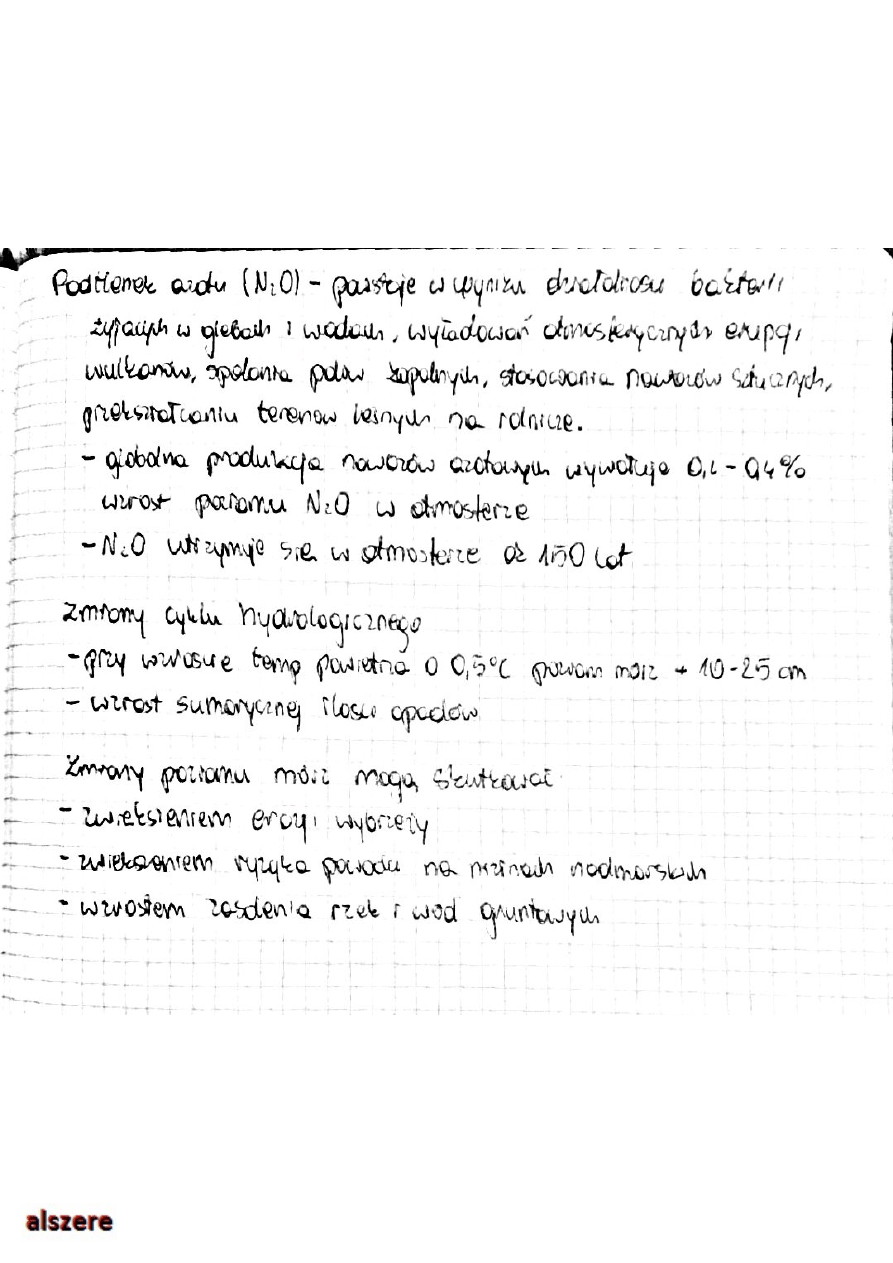 Podtlenek azotu (N₂O) - powstaje w wyniku działalności bakterii
żyjących w glebach i wodach, wyładowań atmosferycznych erupcji
wulkanów, spalania paliw kopalnych, stosowania nawozów sztucznych,
przekształcaniu terenów leśnych na rolnicze.
- globalna produkcja nawozów azotowych wywołuje 0,2 - 0,4%
wzrost poziomu N₂O w atmosferze
- N₂O utrzymuje się w atmosferze ok 150 lat
Zmiany cyklu hydrologicznego
- przy wzroście temp powietrza o 0,5°C poziom mórz + 10-25 cm
- wzrost sumarycznej ilości opadów
Zmiany poziomu mórz mogą skutkować
- zwiększeniem erozji wybrzeży
- zwiększeniem ryzyka powodzi na nizinach nadmorskich
- wzrostem zasolenia rzek i wód gruntowych
alszere